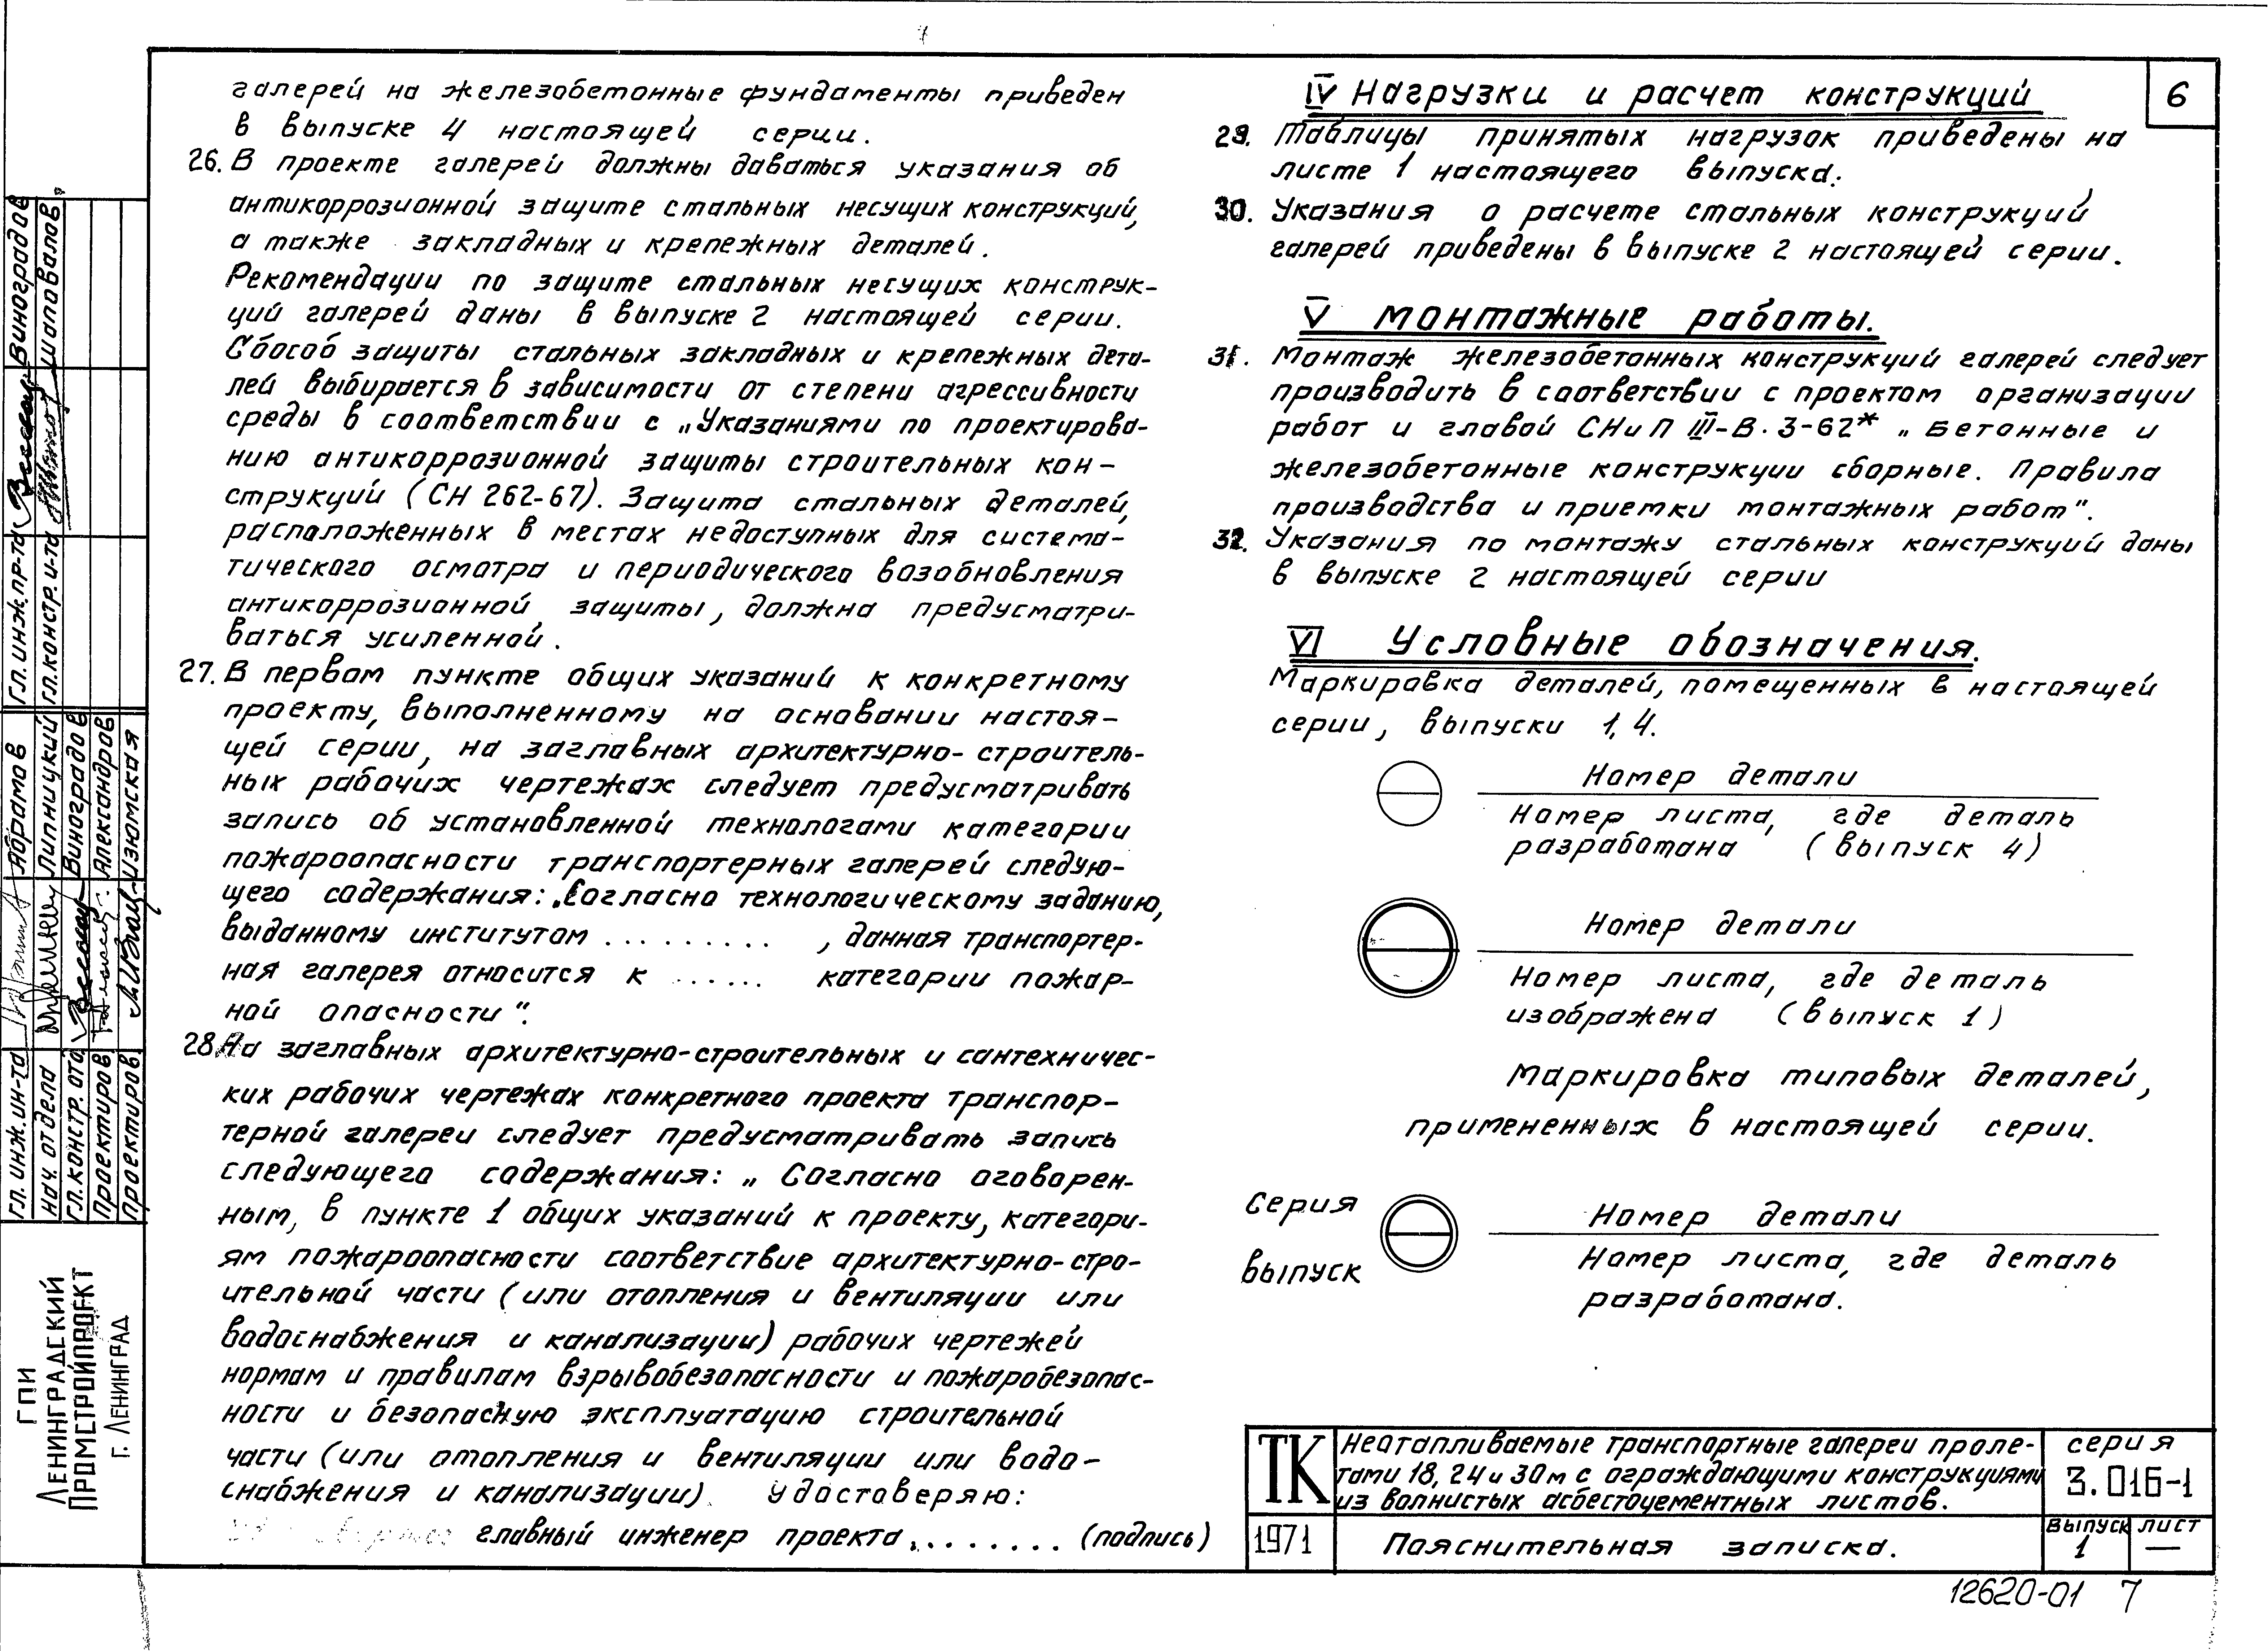 галерей на железобетонные фундаменты приведен
в выпуске 4 настоящей серии.
26. В проекте галерей должны даваться указания об
антикоррозионной защите стальных несущих конструкций,
а также закладных и крепежных деталей.
Рекомендации по защите стальных несущих конструк-
ций галерей даны в выпуске 2 настоящей серии.
защиты стальных закладных и крепежных дета-
лей выбирается в зависимости от степени агрессивности
среды в соответствии с „Указаниями по проектирова-
нию антикоррозионной защиты строительных кон-
струкций (СН 262-67). Защита стальных деталей,
расположенных в местах недоступных для система-
тического осмотра и периодического возобновления
антикоррозионной защиты, должна предусматри-
ваться усиленной.
27. В первом пункте общих указаний к конкретному
проекту, выполненному на основании настоя-
щей серии, на заглавных архитектурно-строитель-
ных рабочих чертежах следует предусматривать
запись об установленной технологами категории
пожароопасности транспортерных галерей следую-
щего содержания: „Согласно технологическому заданию,
выданному институтом ........., данная транспортер-
ная галерея относится к ...... категории пожар-
ной опасности".
28. На заглавных архитектурно-строительных и сантехничес-
ких рабочих чертежах конкретного проекта транспор-
терной галереи следует предусматривать запись
следующего содержания: „Согласно оговорен-
ным, в пункте 1 общих указаний к проекту, категори-
ям пожароопасности соответствие архитектурно-стро-
ительной части (или отопления и вентиляции или
водоснабжения и канализации) рабочих чертежей
нормам и правилам взрывобезопасности и пожаробезопас-
ности и безопасную эксплуатацию строительной
части (или отопления и вентиляции или водо-
снабжения и канализации) удостоверяю:
главный инженер проекта ........ (подпись)
6
IV Нагрузки и расчет конструкций
29. Таблицы принятых нагрузок приведены на
листе 1 настоящего выпуска.
30. Указания о расчете стальных конструкций
галерей приведены в выпуске 2 настоящей серии.
V Монтажные работы.
31. Монтаж железобетонных конструкций галерей следует
производить в соответствии с проектом организации
работ и главой СНиП III-В.3-62* „Бетонные и
железобетонные конструкции сборные. Правила
производства и приемки монтажных работ".
32. Указания по монтажу стальных конструкций даны
в выпуске 2 настоящей серии
VI Условные обозначения.
Маркировка деталей, помещенных в настоящей
серии, выпуски 1, 4.
Номер детали
Номер листа, где деталь
разработана (выпуск 4)
Номер детали
Номер листа, где деталь
изображена (выпуск 1)
Маркировка типовых деталей,
примененных в настоящей серии.
Серия
выпуск
Номер детали
Номер листа, где деталь
разработана.
ТК
Неотапливаемые транспортные галереи проле-
тами 18, 24 и 30м с ограждающими конструкциями
из волнистых асбестоцементных листов.
серия
3.016-1
1971
Пояснительная записка.
выпуск
1
лист
—
12620-01 7
Гл.инж.пр-та Виноградов
Гл.констр.и-та Шаповалов
Гл.инж.ин-та Абрамов
Нач. отдела Липницкий
Гл.констр.отд Виноградов
Проектиров Александров
Проектиров Изюмская
ГПИ
Ленинградский
Промстройпроект
г. Ленинград